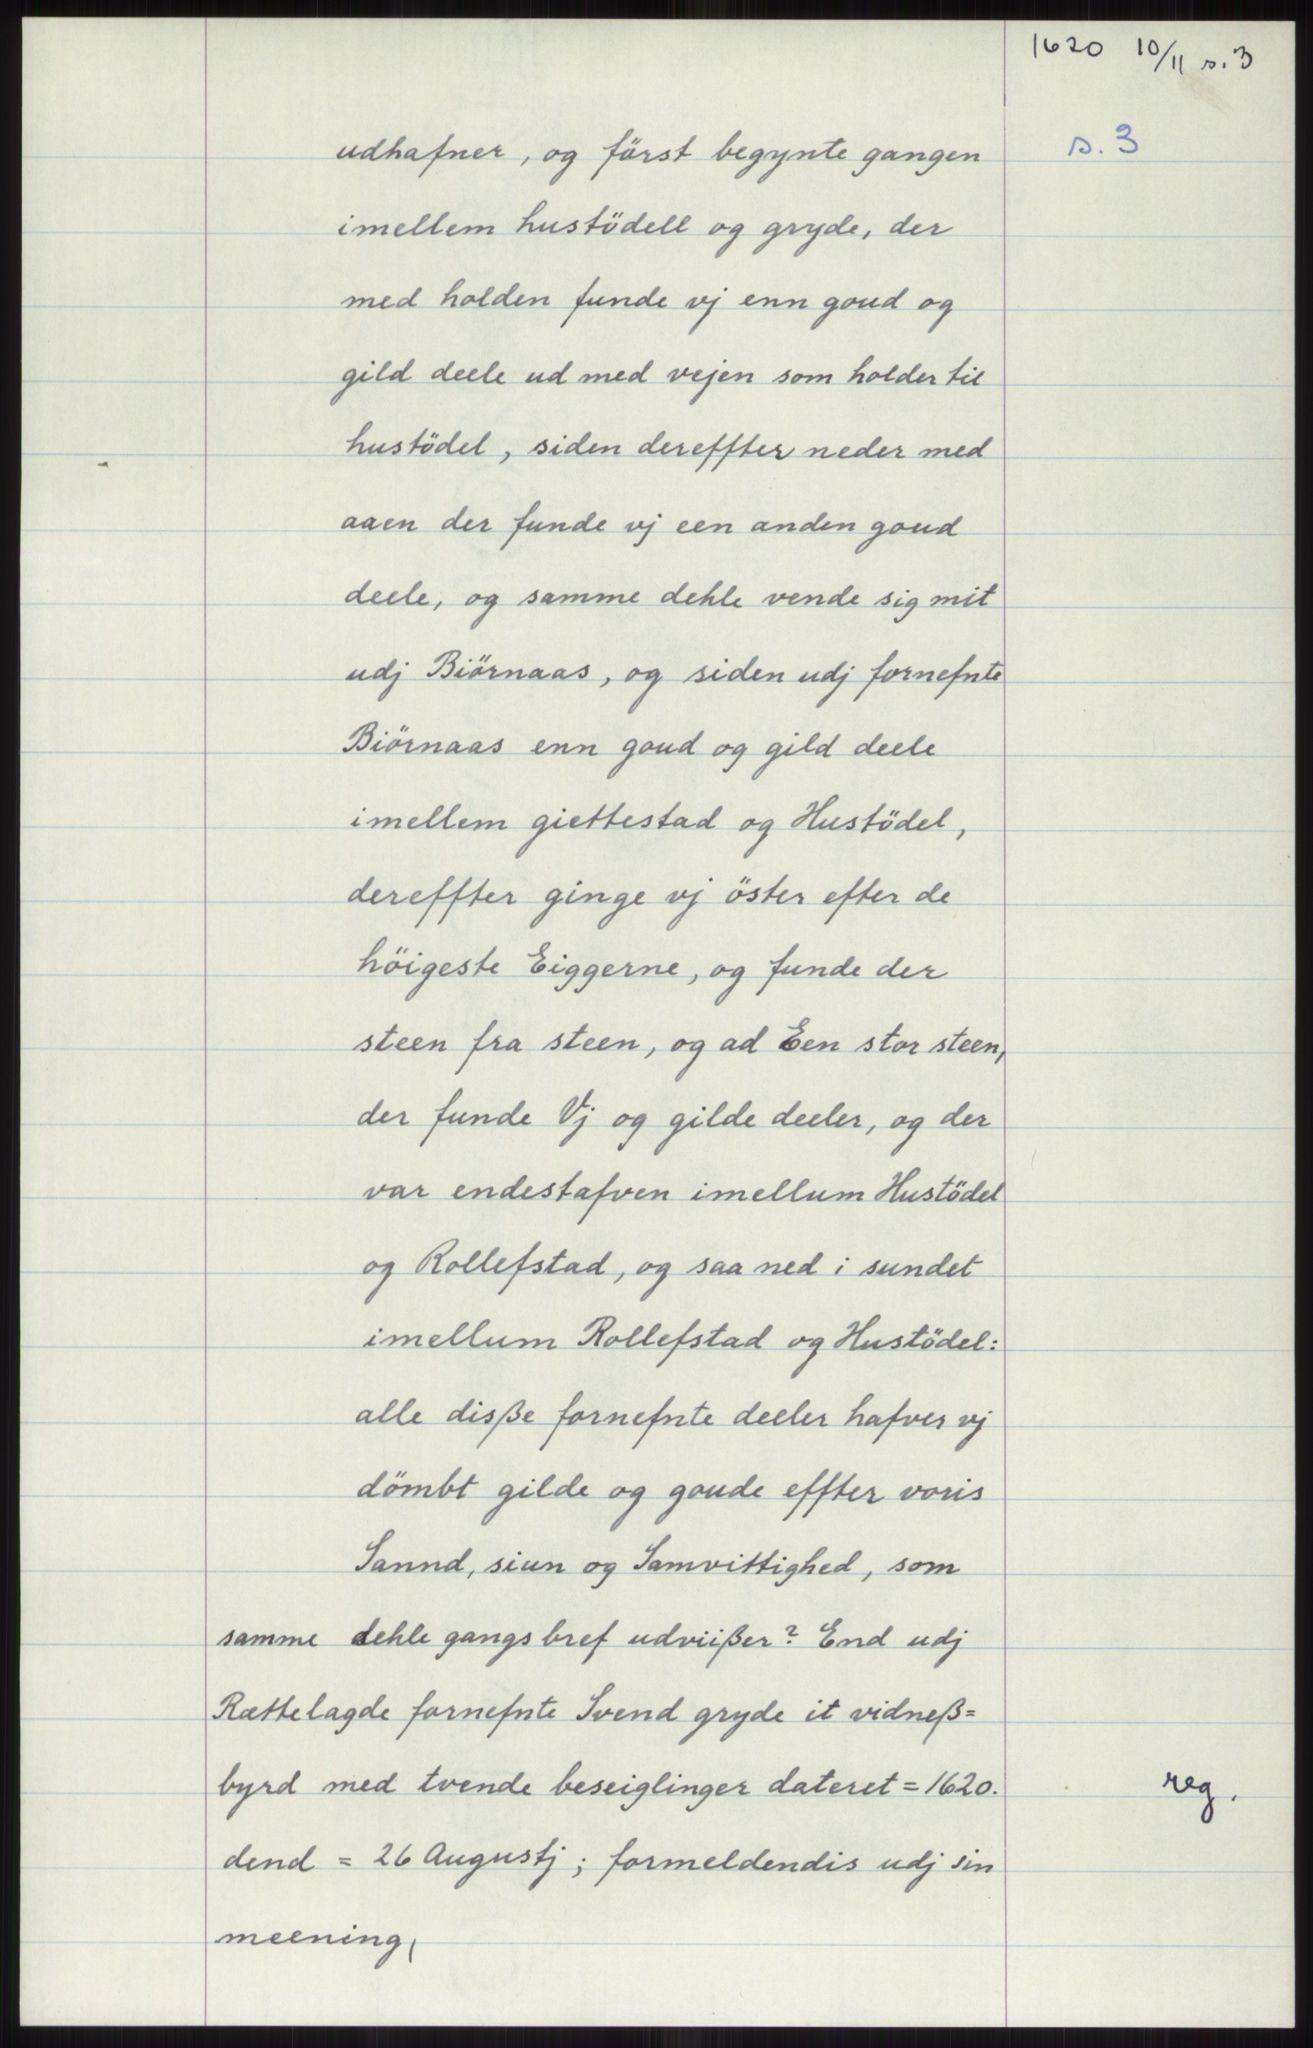 1620 10/11 s. 3
s. 3
udhafner, og först begynte gangen
imellem hustödell og gryde, der
med holden funde vj enn goud og
gild deele ud med vejen som holder til
hustödel, siden dereffter neder med
aaen der funde vj een anden goud
deele, og samme dehle vende sig mit
udj Biörnaas, og siden udj fornefnte
Biörnaas enn goud og gild deele
imellem giettestad og Hustödel,
dereffter ginge vj öster efter de
höigeste Eiggerne, og funde der
steen fra steen, og ad Een stor steen,
der funde Vj og gilde deeler, og der
var endestafven imellum Hustödel
og Rollefstad, og saa ned i sundet
imellum Rollefstad og Hustödel:
alle disße fornefnte deeler hafver vj
dömbt gilde og goude effter voris
Sannd, siun og Samvittighed, som
samme dehle gangs bref udviißer? End udj
Rættelagde fornefnte Svend gryde it vidneß=
byrd med tvende beseiglinger dateret = 1620.
reg.
dend = 26 Augustj; formeldendis udj sin
meening,